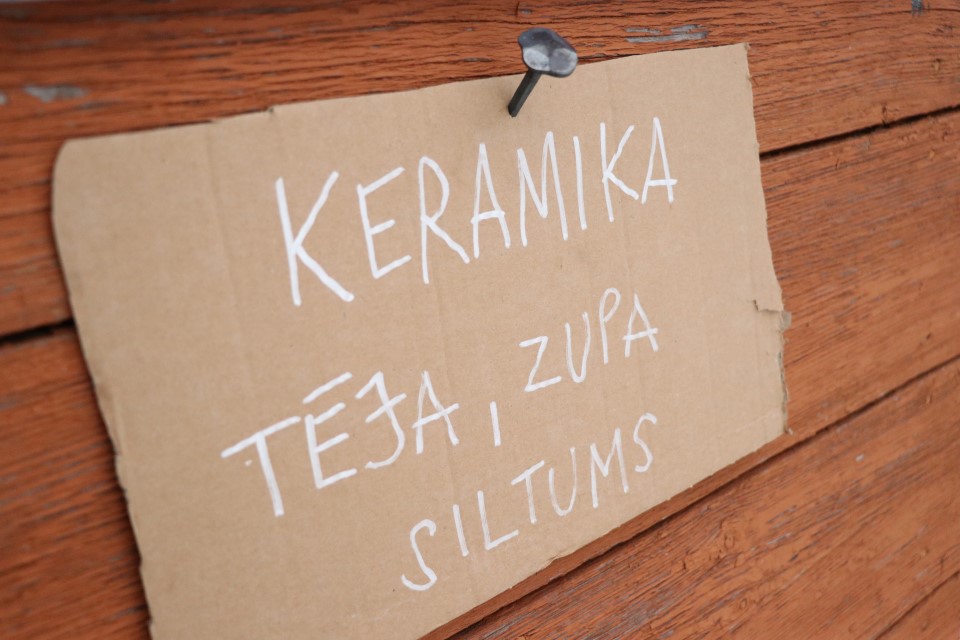 KERAMIKA
TĒJA, ZUPA
SILTUMS